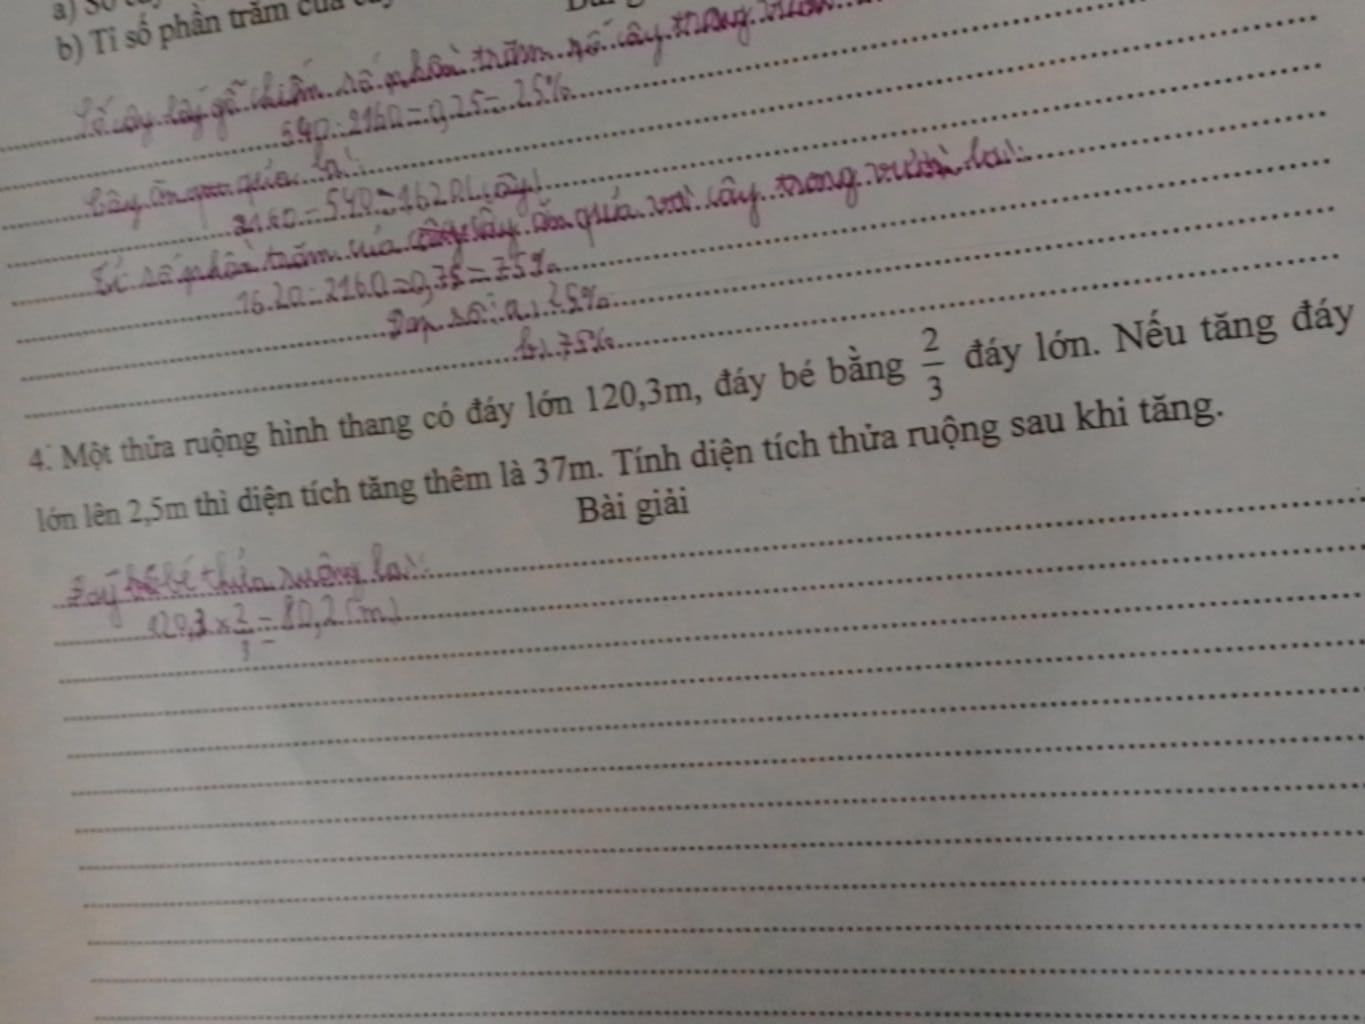 a) Số
b) Tỉ số phần trăm của
Số cây lấy gỗ chiếm số phần trăm số cây trong vườn
540 : 2160 = 0,25 = 25%
Cây ăn quả là:
2160 - 540 = 1620 (cây)
Tỉ số phần trăm của cây ăn quả với cây trong vườn là:
1620 : 2160 = 0,75 = 75%
Đáp số: a, 25%
b, 75%
4. Một thửa ruộng hình thang có đáy lớn 120,3m, đáy bé bằng 2/3 đáy lớn. Nếu tăng đáy
lớn lên 2,5m thì diện tích tăng thêm là 37m. Tính diện tích thửa ruộng sau khi tăng.
Bài giải
Đáy bé thửa ruộng là:
120,3 × 2/3 = 80,2 (m)